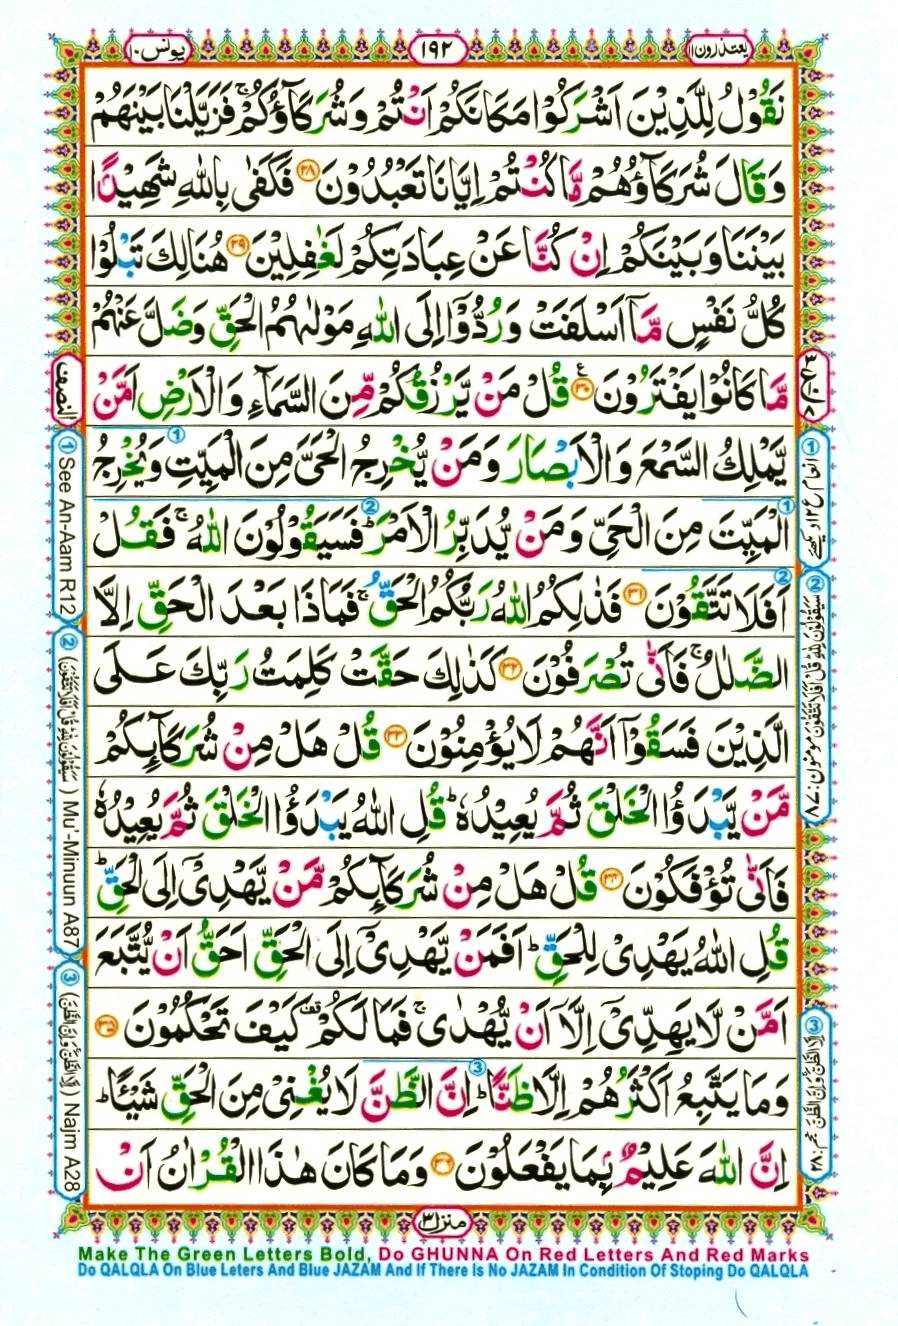 يعتذرون ١١
١٩٢
يونس ١٠
نَقُوْلُ لِلَّذِيْنَ اَشْرَكُوْا مَكَانَكُمْ اَنْتُمْ وَشُرَكَآؤُكُمْ ۚ فَزَيَّلْنَا بَيْنَهُمْ
وَقَالَ شُرَكَآؤُهُمْ مَّا كُنْتُمْ اِيَّانَا تَعْبُدُوْنَ ﴿٢٨﴾ فَكَفٰى بِاللّٰهِ شَهِيْدًۢا
بَيْنَنَا وَبَيْنَكُمْ اِنْ كُنَّا عَنْ عِبَادَتِكُمْ لَغٰفِلِيْنَ ﴿٢٩﴾ هُنَالِكَ تَبْلُوْا
كُلُّ نَفْسٍ مَّآ اَسْلَفَتْ وَرُدُّوْٓا اِلَى اللّٰهِ مَوْلٰىهُمُ الْحَقِّ وَضَلَّ عَنْهُمْ
مَّا كَانُوْا يَفْتَرُوْنَ ﴿٣٠﴾ قُلْ مَنْ يَّرْزُقُكُمْ مِّنَ السَّمَآءِ وَالْاَرْضِ اَمَّنْ
يَّمْلِكُ السَّمْعَ وَالْاَبْصَارَ وَمَنْ يُّخْرِجُ الْحَيَّ مِنَ الْمَيِّتِ وَيُخْرِجُ
الْمَيِّتَ مِنَ الْحَيِّ وَمَنْ يُّدَبِّرُ الْاَمْرَ ؕ فَسَيَقُوْلُوْنَ اللّٰهُ ۚ فَقُلْ
اَفَلَا تَتَّقُوْنَ ﴿٣١﴾ فَذٰلِكُمُ اللّٰهُ رَبُّكُمُ الْحَقُّ ۚ فَمَاذَا بَعْدَ الْحَقِّ اِلَّا
الضَّلٰلُ ۚ فَاَنّٰى تُصْرَفُوْنَ ﴿٣٢﴾ كَذٰلِكَ حَقَّتْ كَلِمَتُ رَبِّكَ عَلَى
الَّذِيْنَ فَسَقُوْٓا اَنَّهُمْ لَا يُؤْمِنُوْنَ ﴿٣٣﴾ قُلْ هَلْ مِنْ شُرَكَآئِكُمْ
مَّنْ يَّبْدَؤُا الْخَلْقَ ثُمَّ يُعِيْدُهٗ ؕ قُلِ اللّٰهُ يَبْدَؤُا الْخَلْقَ ثُمَّ يُعِيْدُهٗ
فَاَنّٰى تُؤْفَكُوْنَ ﴿٣٤﴾ قُلْ هَلْ مِنْ شُرَكَآئِكُمْ مَّنْ يَّهْدِيْٓ اِلَى الْحَقِّ ؕ
قُلِ اللّٰهُ يَهْدِيْ لِلْحَقِّ ؕ اَفَمَنْ يَّهْدِيْٓ اِلَى الْحَقِّ اَحَقُّ اَنْ يُّتَّبَعَ
اَمَّنْ لَّا يَهِدِّيْٓ اِلَّآ اَنْ يُّهْدٰى ۚ فَمَا لَكُمْ ۫ كَيْفَ تَحْكُمُوْنَ ﴿٣٥﴾
وَمَا يَتَّبِعُ اَكْثَرُهُمْ اِلَّا ظَنًّا ؕ اِنَّ الظَّنَّ لَا يُغْنِيْ مِنَ الْحَقِّ شَيْئًا ؕ
اِنَّ اللّٰهَ عَلِيْمٌۢ بِمَا يَفْعَلُوْنَ ﴿٣٦﴾ وَمَا كَانَ هٰذَا الْقُرْاٰنُ اَنْ
النصف
① See An-Aam R12
② (سَيَقُوْلُوْنَ لِلّٰهِ قُلْ اَفَلَا تَتَّقُوْنَ) Mu'-Minuun A87
③ (اِلَّا الظَّنَّ وَاِنَّ الظَّنَّ) Najm A28
① انعام ع ١٢ دیکھئے
② سَيَقُوْلُوْنَ لِلّٰهِ قُلْ اَفَلَا تَتَّقُوْنَ مومنون: ٨٧
③ اِلَّا الظَّنَّ وَاِنَّ الظَّنَّ نجم: ٢٨
منزل ٣
Make The Green Letters Bold, Do GHUNNA On Red Letters And Red Marks
Do QALQLA On Blue Leters And Blue JAZAM And If There Is No JAZAM In Condition Of Stoping Do QALQLA